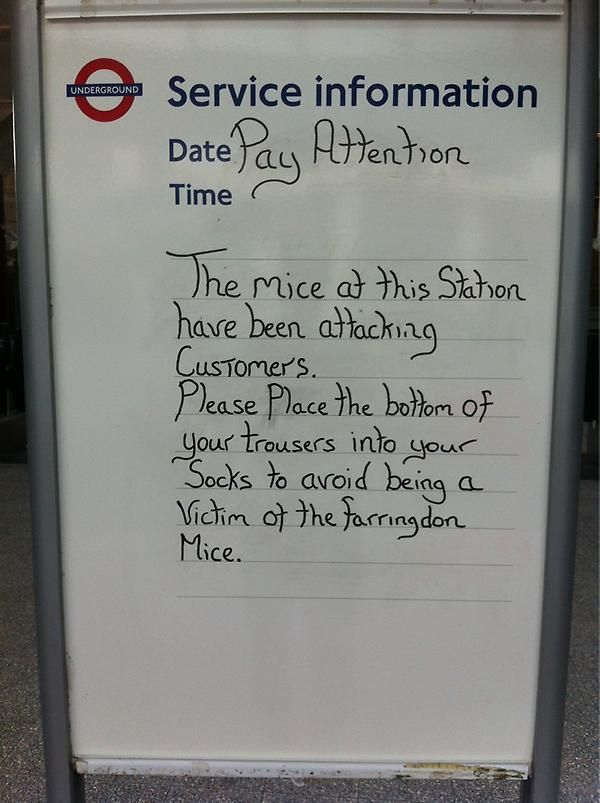 UNDERGROUND
Service information
Date Pay Attention
Time
The mice at this Station
have been attacking
Customers.
Please Place the bottom of
your trousers into your
Socks to avoid being a
Victim of the farringdon
Mice.